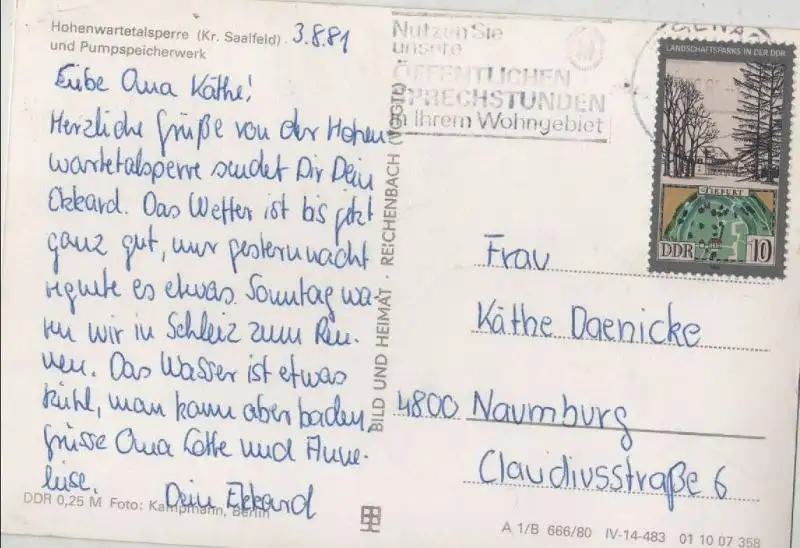 Hohenwartetalsperre (Kr. Saalfeld) 3.8.81
und Pumpspeicherwerk
Liebe Oma Käthe!
Herzliche Grüße von der Hohen
wartetalsperre sendet Dir Dein
Ekkard. Das Wetter ist bis jetzt
ganz gut, nur gesternnacht
regnete es etwas. Sonntag wa-
ren wir in Schleiz zum Ren-
nen. Das Wasser ist etwas
kühl, man kann aber baden.
Grüsse Oma Lotte und Anne-
liese.
Dein Ekkard
DDR 0,25 M Foto: Kampmann, Berlin
BILD UND HEIMAT · REICHENBACH (VOGTL)
Nutzen Sie
unsere
ÖFFENTLICHEN
SPRECHSTUNDEN
in Ihrem Wohngebiet
LANDSCHAFTSPARKS IN DER DDR
DDR 10
Frau
Käthe Daenicke
4800 Naumburg
Claudiusstraße 6
A 1/B 666/80 IV-14-483 01 10 07 358